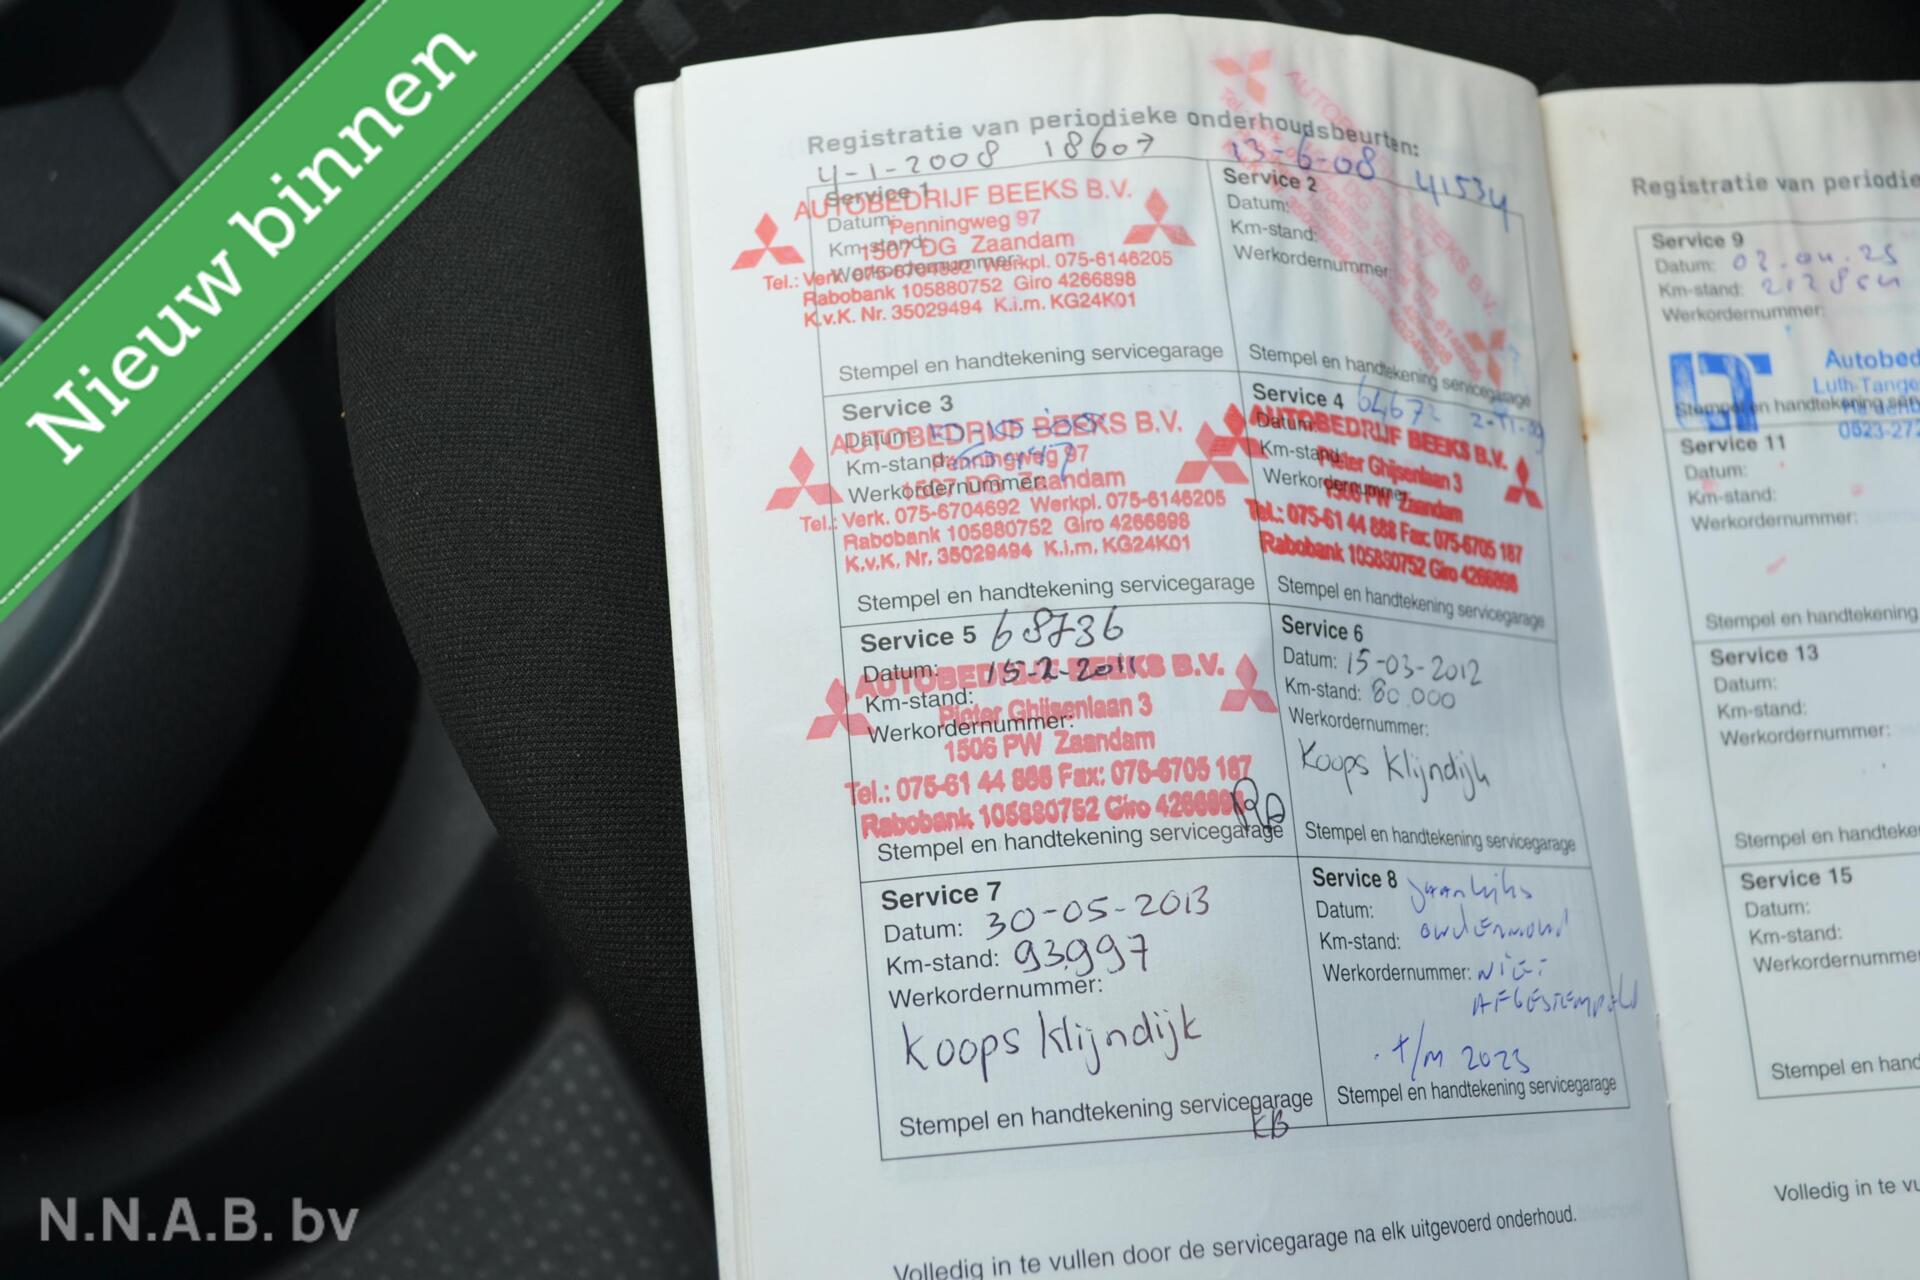 Nieuw binnen
Registratie van periodieke onderhoudsbeurten:
4-1-2008 18607
Service 1
Datum:
Km-stand:
Werkordernummer:
AUTOBEDRIJF BEEKS B.V.
Penningweg 97
1507 DG Zaandam
Tel.: Verk. 075-6704692 Werkpl. 075-6146205
Rabobank 105880752 Giro 4266898
K.v.K. Nr. 35029494 K.i.m. KG24K01
Stempel en handtekening servicegarage
13-6-08 41534
Service 2
Datum:
Km-stand:
Werkordernummer:
Stempel en handtekening servicegarage
Service 3
Datum:
Km-stand:
Werkordernummer:
AUTOBEDRIJF BEEKS B.V.
Penningweg 97
1507 DG Zaandam
Tel.: Verk. 075-6704692 Werkpl. 075-6146205
Rabobank 105880752 Giro 4266898
K.v.K. Nr. 35029494 K.i.m. KG24K01
Stempel en handtekening servicegarage
Service 4 64672
Datum:
Km-stand:
Werkordernummer:
AUTOBEDRIJF BEEKS B.V.
Pieter Ghijsenlaan 3
1506 PW Zaandam
Tel.: 075-61 44 888 Fax: 075-6705 187
Rabobank 105880752 Giro 4266898
Stempel en handtekening servicegarage
Service 5 68736
Datum: 15-2-2011
Km-stand:
Werkordernummer:
AUTOBEDRIJF BEEKS B.V.
Pieter Ghijsenlaan 3
1506 PW Zaandam
Tel.: 075-61 44 888 Fax: 075-6705 187
Rabobank 105880752 Giro 4266898
Stempel en handtekening servicegarage
Service 6
Datum: 15-03-2012
Km-stand: 80.000
Werkordernummer:
Koops Klijndijk
Stempel en handtekening servicegarage
Service 7
Datum: 30-05-2013
Km-stand: 93.997
Werkordernummer:
Koops Klijndijk
Stempel en handtekening servicegarage
KB
Service 8 Jaarlijks
Datum:
Km-stand: onderhoud
Werkordernummer: NIET
AFGESTEMPELD
t/m 2023
Stempel en handtekening servicegarage
Volledig in te vullen door de servicegarage na elk uitgevoerd onderhoud.
Registratie van periodie
Service 9
Datum: 02.04.25
Km-stand:
Werkordernummer:
Autobed
Luth Tange
0523-272
Stempel en handtekening serv
Service 11
Datum:
Km-stand:
Werkordernummer:
Stempel en handtekening
Service 13
Datum:
Km-stand:
Werkordernummer:
Stempel en handteke
Service 15
Datum:
Km-stand:
Werkordernummer:
Stempel en hand
Volledig in te vu
N.N.A.B. bv